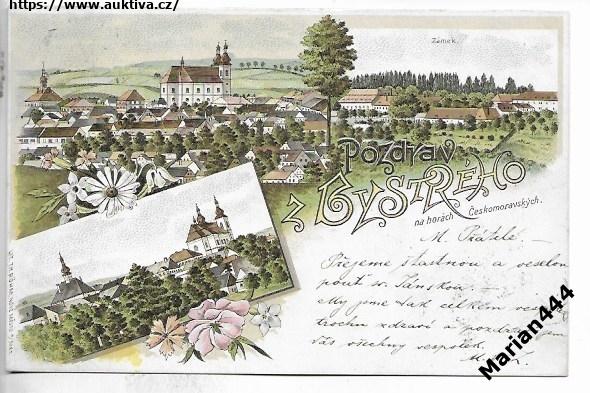 https://www.auktiva.cz/
Zámek.
Pozdrav
z Bystrého
na horách Českomoravských.
M. Přátelé. —
Přejeme šťastnou a veselou
pouť sv. Jánskou. —
My jsme tak celkem
trochu zdraví a pozdravujem
Vás všechny vespolek.
M.
Marian444